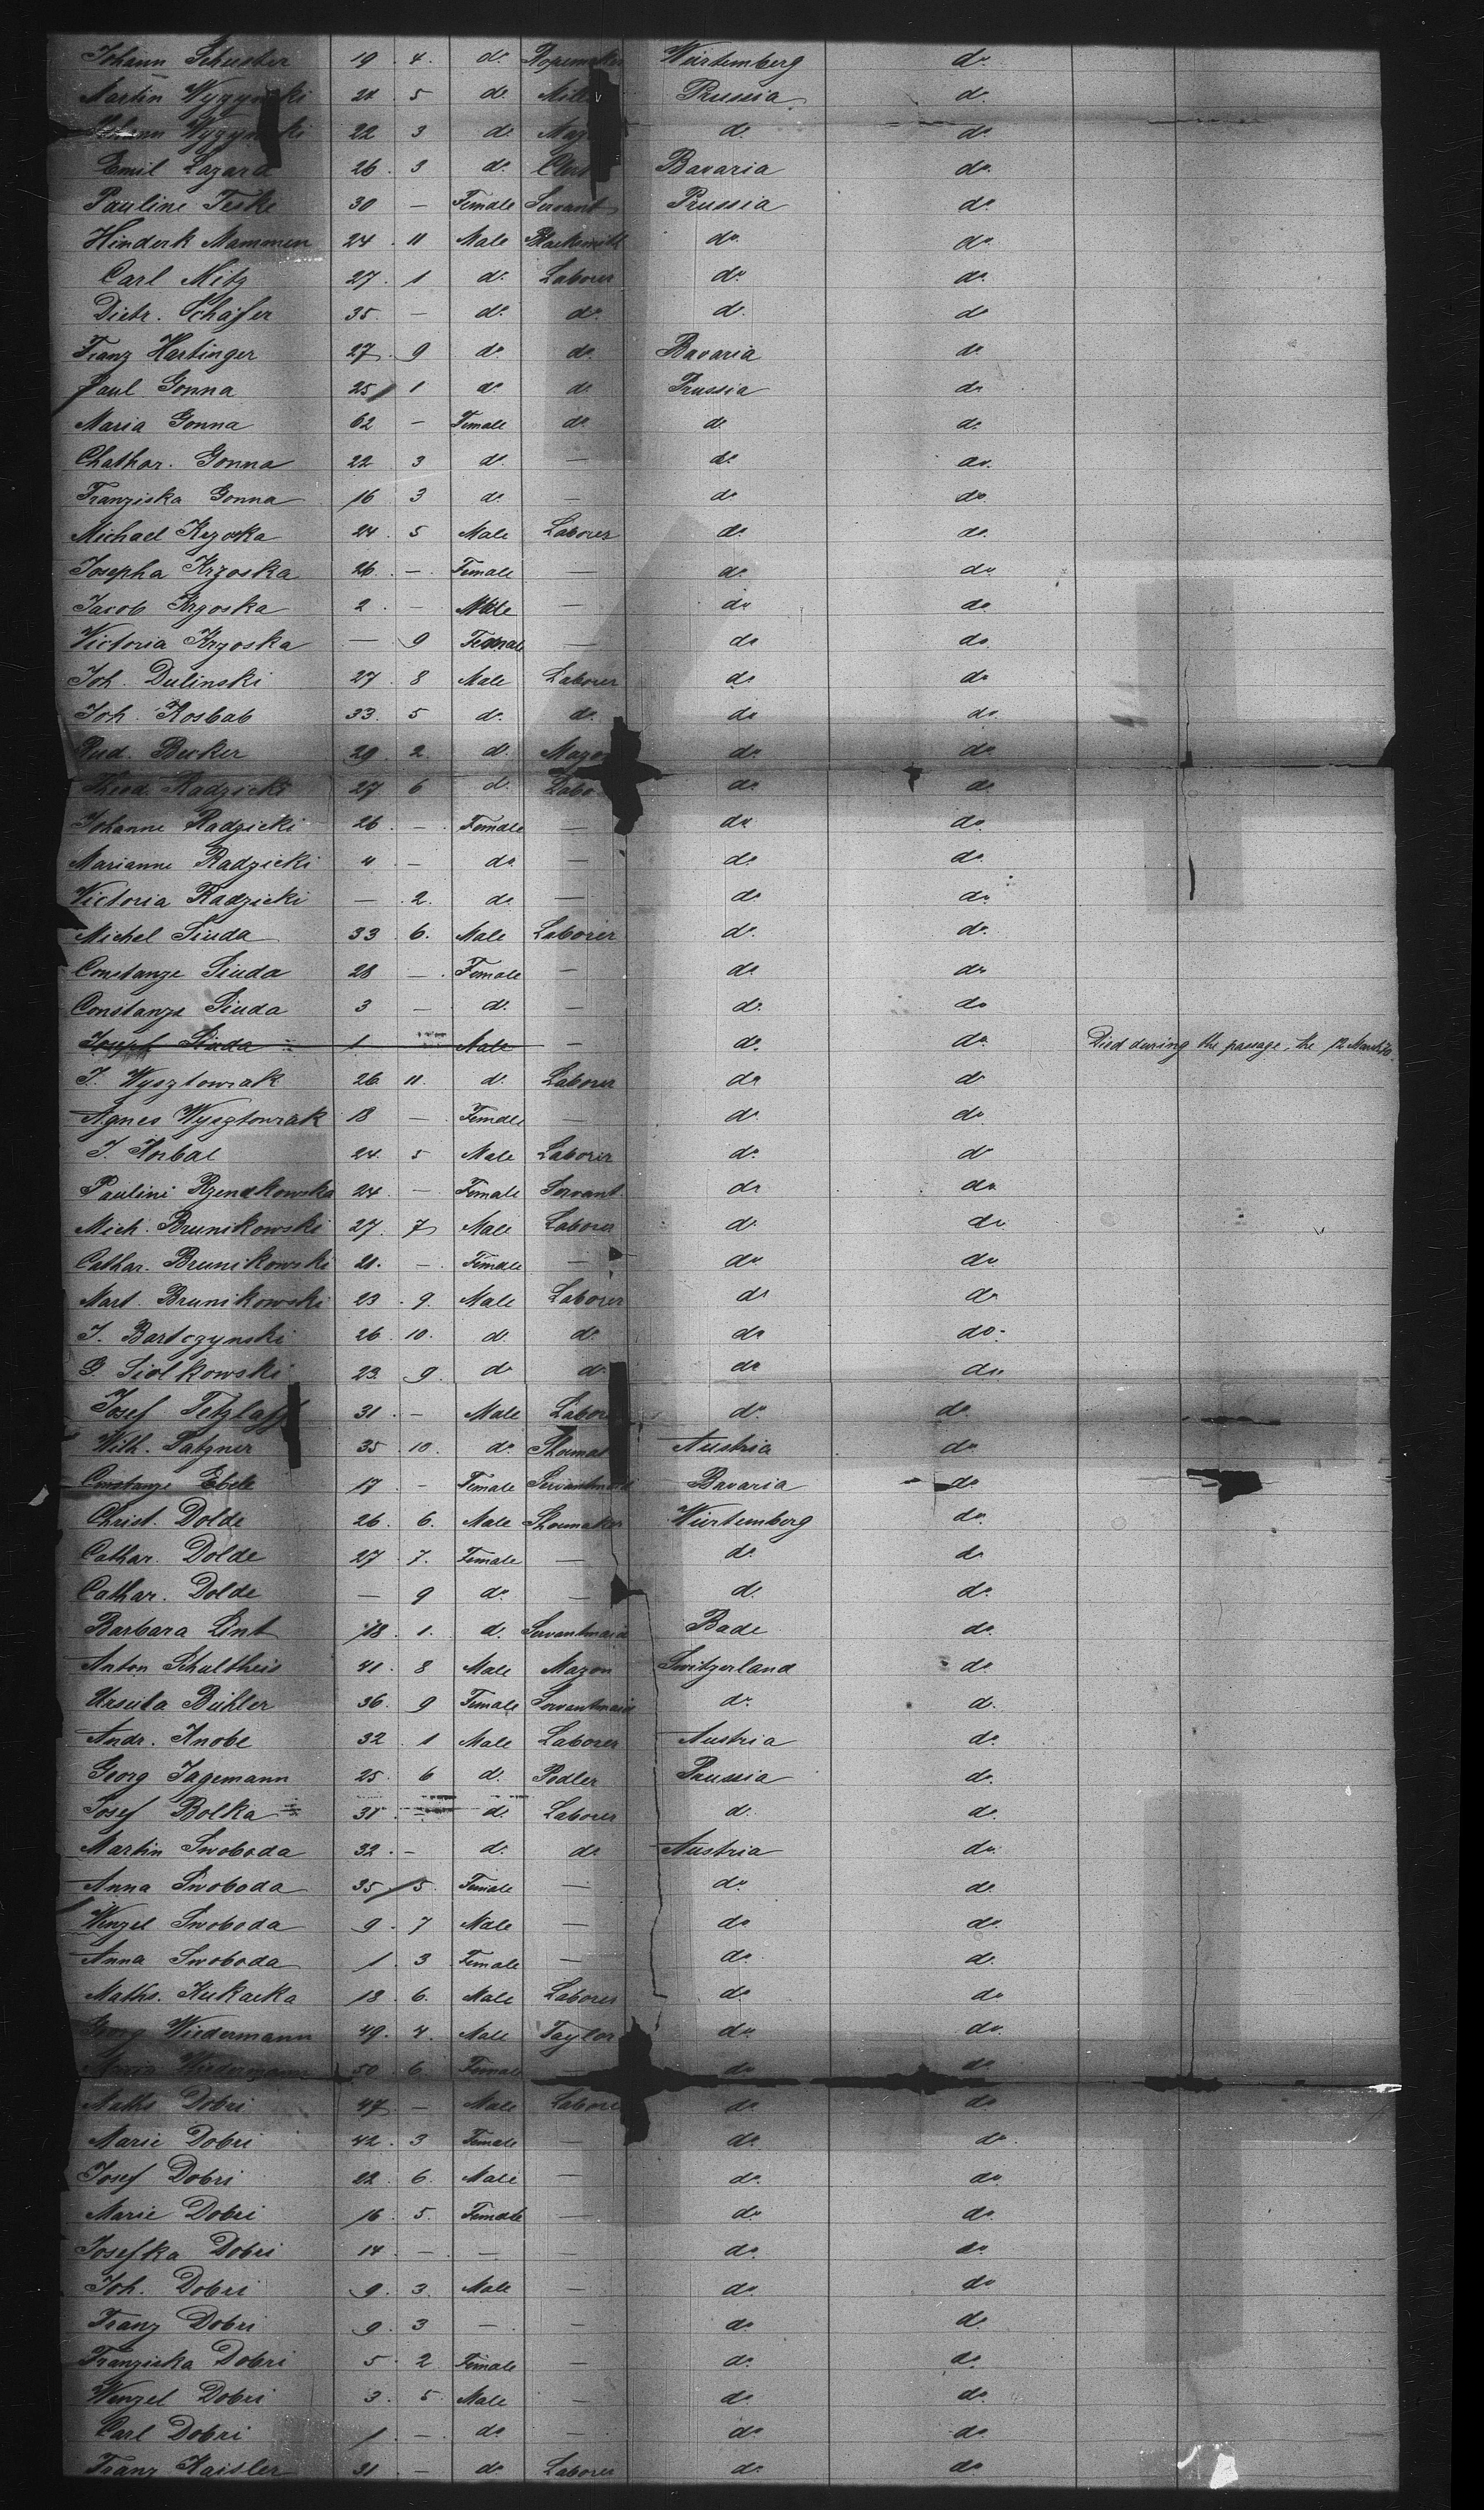 Johann Schuster 19 4 do Ropemaker Würtemberg do
Martin 24 5 do Prussia do
22 3 do do do
Emil Lazard 26 3 do Bavaria do
Pauline Teske 30 — Female Servant Prussia do
Hinderk Mammen 24 11 Male Blacksmith do do
Carl Nitz 27 1 do Laborer do do
Dietr. Schäfer 35 — do do do do
Franz Hartinger 27 9 do do Bavaria do
Paul Gonna 25 1 do do Prussia do
Maria Gonna 62 — Female do do do
Chathar. Gonna 22 3 do — do do
Franziska Gonna 16 3 do — do do
Michael Krzoska 24 5 Male Laborer do do
Josepha Krzoska 26 — Female — do do
Jacob Krzoska 2 — Male — do do
Victoria Krzoska — 9 Female — do do
Joh. Dulinski 27 8 Male Laborer do do
Joh. Kosbab 33 5 do do do do
Rud. Becker 29 2 do Mazon do do
Theod. Radzicki 27 6 do Labo do do
Johanne Radzicki 26 — Female — do do
Marianne Radzicki 4 — do — do do
Victoria Radzicki — 2 do — do do
Michel Siuda 33 6 Male Laborer do do
Constanze Siuda 28 — Female — do do
Constanze Siuda 3 — do — do do
Joseph Siuda 1 Male — do do Died during the passage, the 12 March 70.
J. Wysztowrak 26 11 do Laborer do do
Agnes Wysztowrak 18 — Female — do do
J. Korbal 24 5 Male Laborer do do
Paulini Rzendkowska 24 — Female Servant do do
Mich. Brunikowski 27 7 Male Laborer do do
Cathar. Brunikowski 21 — Female — do do
Mart. Brunikowski 23 9 Male Laborer do do
J. Bartczynski 26 10 do do do do
Siolkowski 23 9 do do do do
Josef Tetzlaff 31 — Male Labor do do
Wilh. Satzner 35 10 do Shoemak Austria do
Constanze Ebele 17 — Female Servantmaid Bavaria do
Christ. Dolde 26 6 Male Shoemaker Würtemberg do
Cathar. Dolde 27 7 Female — do do
Cathar. Dolde — 9 do — do do
Barbara Lint 18 1 do Servantmaid Bade do
Anton Schultheis 41 8 Male Mazon Switzerland do
Ursula Bühler 36 9 Female Servantmaid do do
Andr. Knobe 32 1 Male Laborer Austria do
Georg Jagemann 25 6 do Pedler Prussia do
Josef Bolka 31 — do Laborer do do
Martin Swoboda 32 — do do Austria do
Anna Swoboda 35 5 Female — do do
Wenzel Swoboda 9 7 Male — do do
Anna Swoboda 1 3 Female — do do
Maths. Kukacka 18 6 Male Laborer do do
Georg Wiedermann 49 4 Male Taylor do do
Wiedermann 50 6 Female — do do
Maths Dobri 47 — Male Labore do do
Marie Dobri 42 3 Female — do do
Josef Dobri 22 6 Male — do do
Marie Dobri 16 5 Female — do do
Josefka Dobri 14 — — — do do
Joh. Dobri 9 3 Male — do do
Franz Dobri 9 3 — — do do
Franziska Dobri 5 2 Female — do do
Wenzel Dobri 3 5 Male — do do
Carl Dobri 1 — do — do do
Franz Kaisler 31 — do Laborer do do